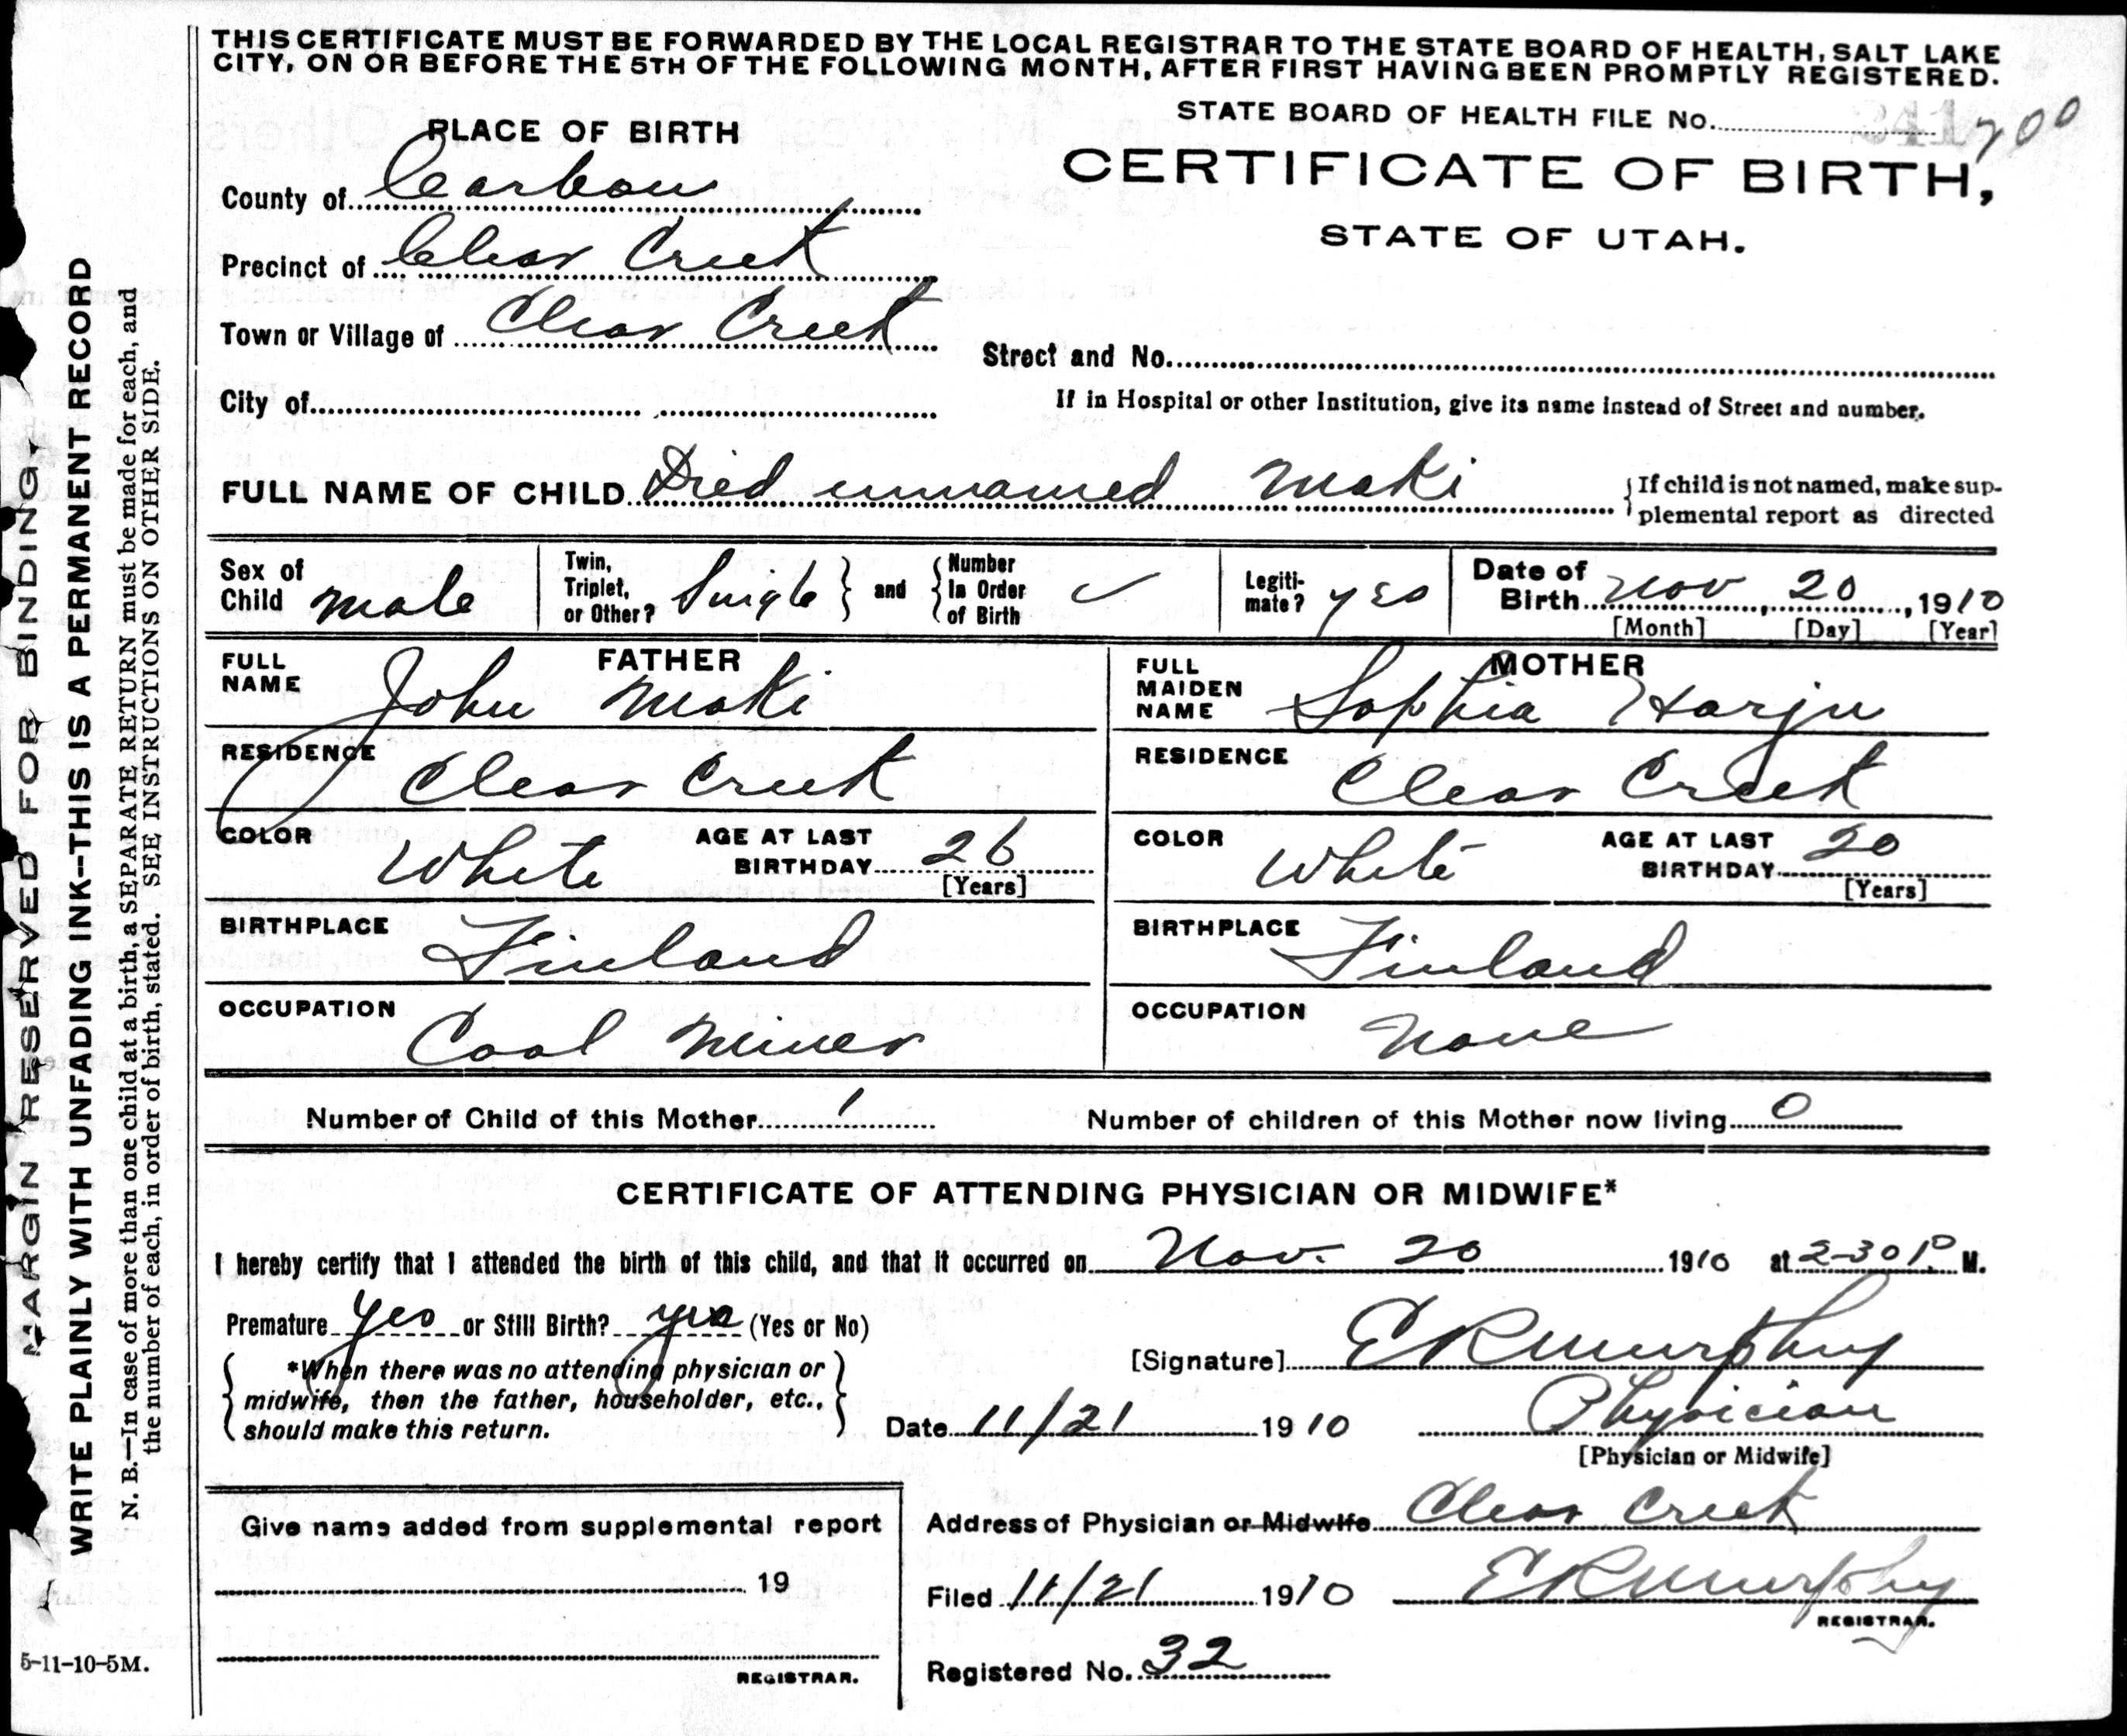 THIS CERTIFICATE MUST BE FORWARDED BY THE LOCAL REGISTRAR TO THE STATE BOARD OF HEALTH, SALT LAKE
CITY, ON OR BEFORE THE 5TH OF THE FOLLOWING MONTH, AFTER FIRST HAVING BEEN PROMPTLY REGISTERED.
STATE BOARD OF HEALTH FILE No. 200
PLACE OF BIRTH
CERTIFICATE OF BIRTH,
STATE OF UTAH.
County of Carbon
Precinct of Clear Creek
Town or Village of Clear Creek
Street and No.
City of
If in Hospital or other Institution, give its name instead of Street and number.
FULL NAME OF CHILD Died unnamed Maki
If child is not named, make sup-
plemental report as directed
Sex of Child male
Twin, Triplet, or Other? Single and Number In Order of Birth ✓
Legiti-mate? yes
Date of Birth Nov 20, 1910
[Month] [Day] [Year]
FATHER
FULL NAME John Maki
RESIDENCE Clear Creek
COLOR White AGE AT LAST BIRTHDAY 26
[Years]
BIRTHPLACE Finland
OCCUPATION Coal Miner
MOTHER
FULL MAIDEN NAME Sophia Harju
RESIDENCE Clear Creek
COLOR White AGE AT LAST BIRTHDAY 20
[Years]
BIRTHPLACE Finland
OCCUPATION None
Number of Child of this Mother 1 Number of children of this Mother now living 0
CERTIFICATE OF ATTENDING PHYSICIAN OR MIDWIFE*
I hereby certify that I attended the birth of this child, and that it occurred on Nov. 20 1910 at 2-30 P. M.
Premature yes or Still Birth? yes (Yes or No)
*When there was no attending physician or
midwife, then the father, householder, etc.,
should make this return.
[Signature] E R Murphy
Date 11/21 1910 Physician
[Physician or Midwife]
Give name added from supplemental report
19
REGISTRAR.
Address of Physician or Midwife Clear Creek
Filed 11/21 1910 E R Murphy
REGISTRAR.
Registered No. 32
5-11-10-5M.
MARGIN RESERVED FOR BINDING.
WRITE PLAINLY WITH UNFADING INK--THIS IS A PERMANENT RECORD
N. B.—In case of more than one child at a birth, a SEPARATE RETURN must be made for each, and
the number of each, in order of birth, stated. SEE INSTRUCTIONS ON OTHER SIDE.